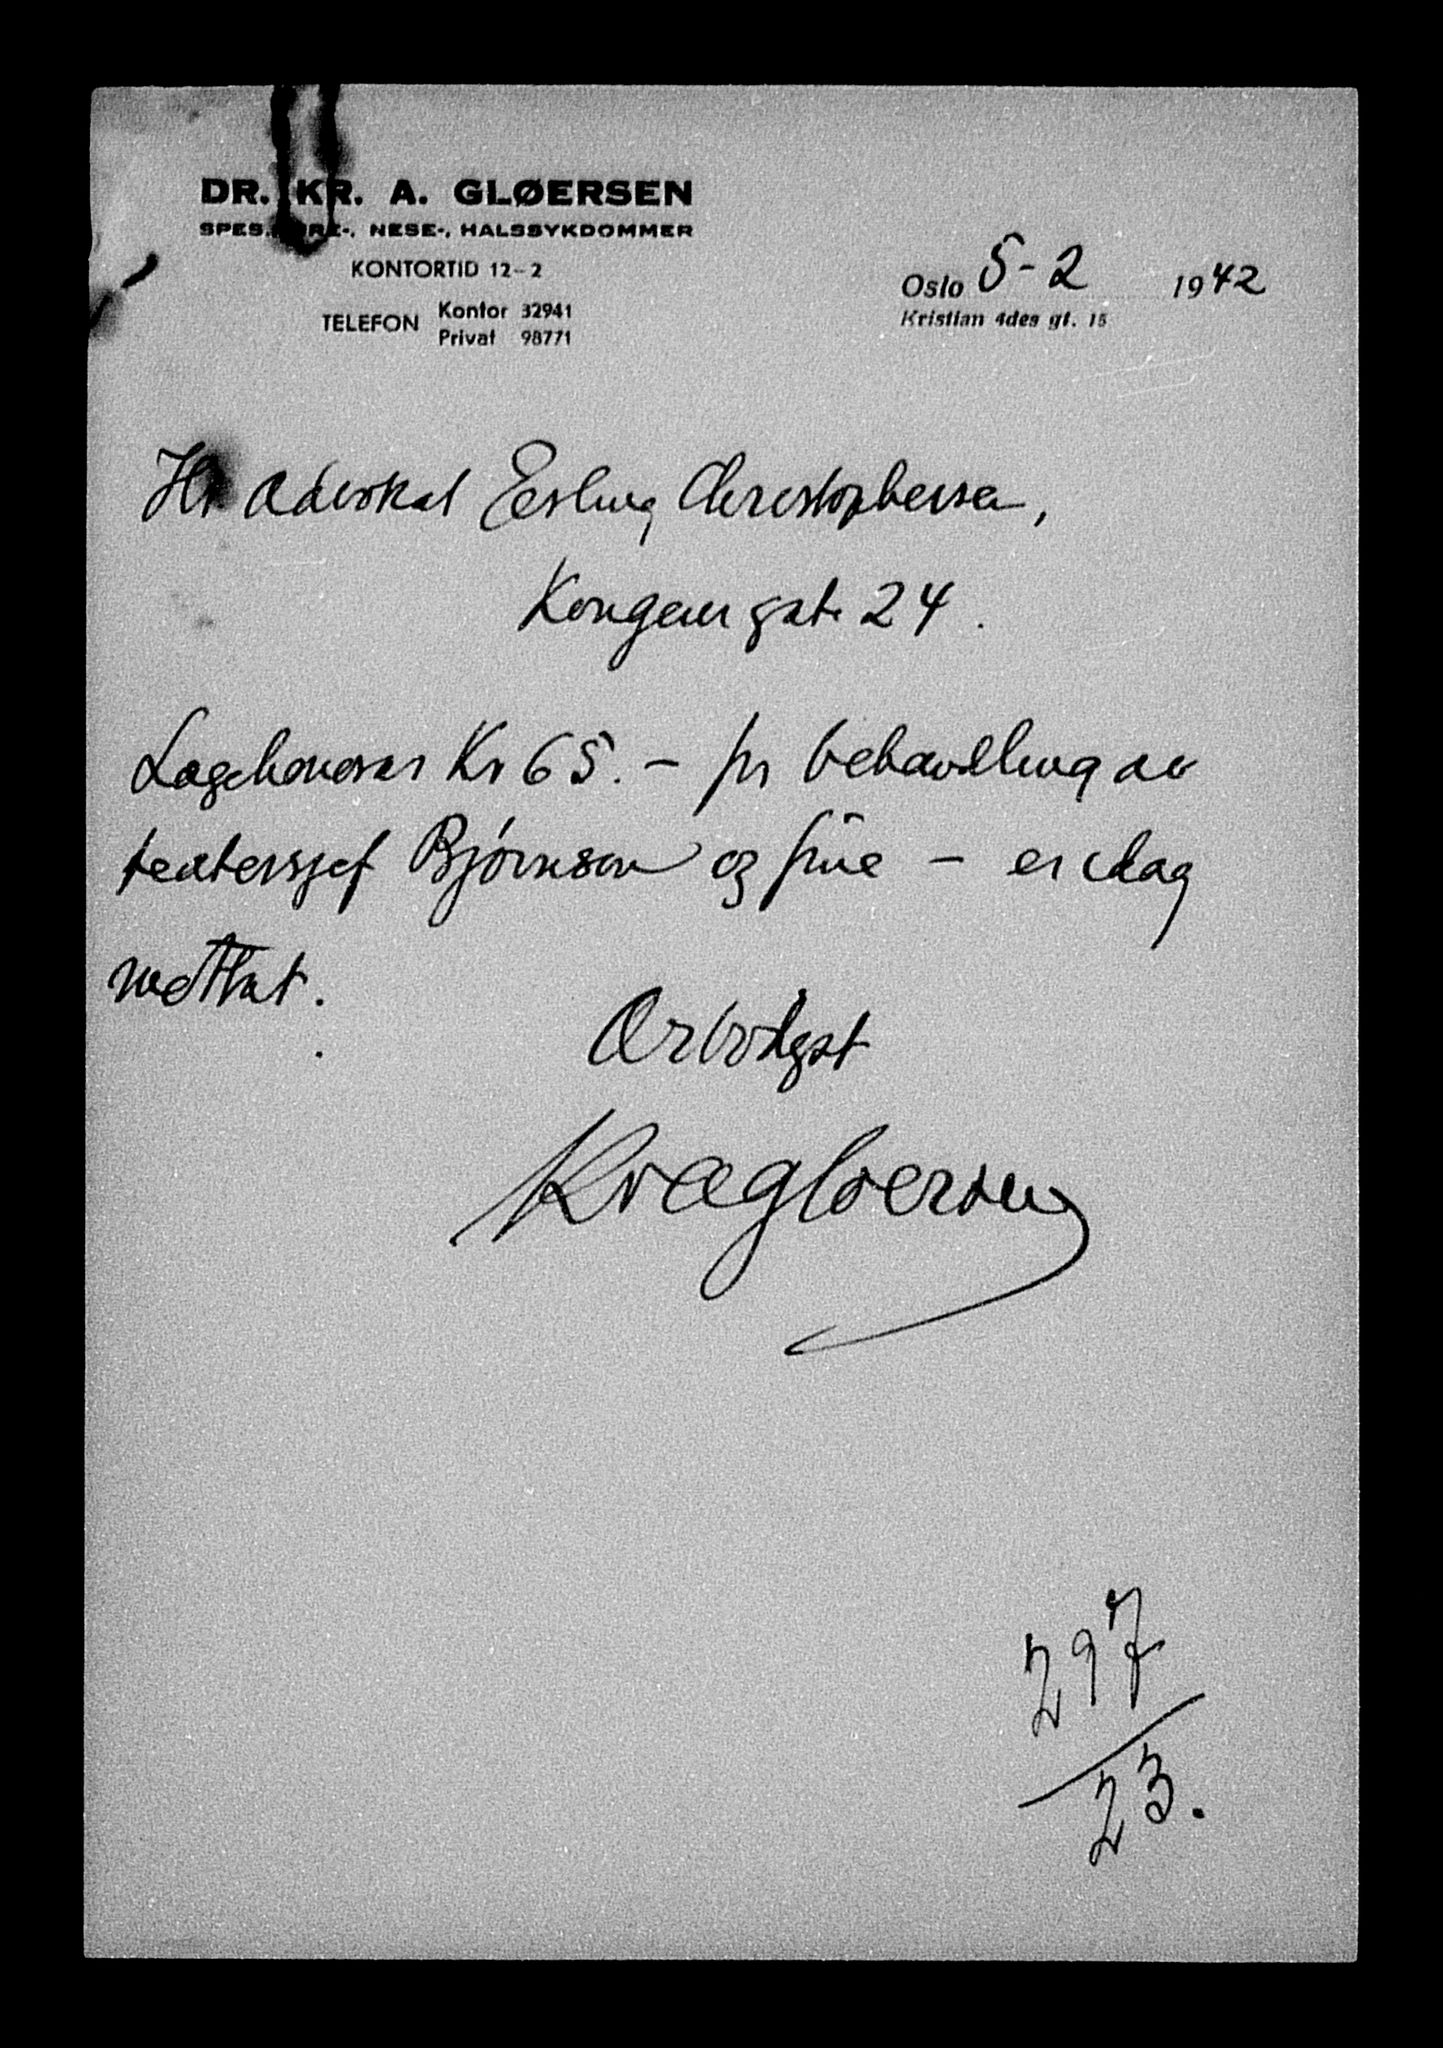 DR. KR. A. GLØERSEN
SPES. ØRE-, NESE-, HALSSYKDOMMER
KONTORTID 12-2
TELEFON Kontor 32941
Privat 98771
Oslo 5-2 1942
Kristian 4des gt. 15
Hr advokat Erling Christophersen,
Kongens gate 24.
Legehonorar Kr 65.- for behandling av
teatersjef Bjørnson og frue - er idag
mottat.
Ærbødigst
Kr A Gløersen
297
23.